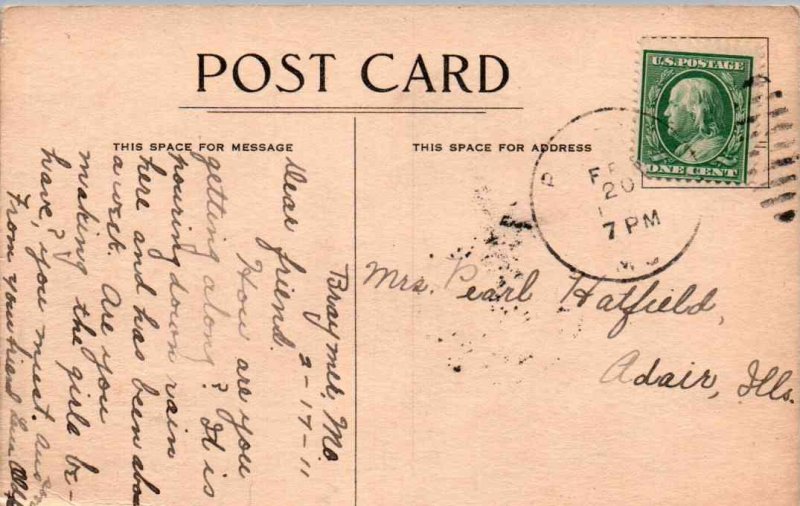 POST CARD
THIS SPACE FOR MESSAGE
THIS SPACE FOR ADDRESS
U.S. POSTAGE
ONE CENT
20
7 PM
Braymer, Mo
2-17-11
Dear friend.
How are you
getting along? It is
pouring down rain
here and has been abou
a week. Are you
making the girls be-
have? you must.
From your friend
Mrs. Pearl Hatfield,
Adair, Ills.